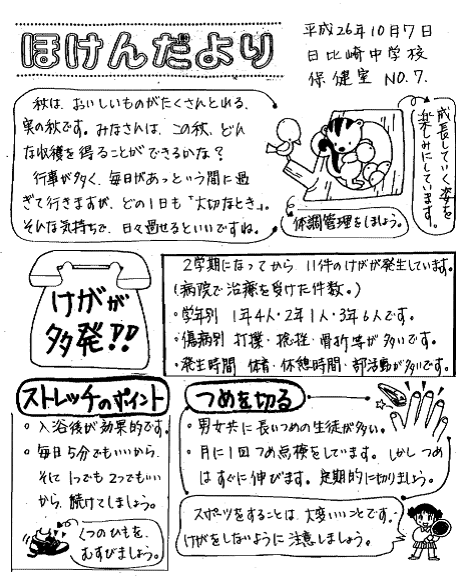 ほけんだより
平成26年10月7日
日比崎中学校
保健室 NO.7.
秋は、おいしいものがたくさんとれる、
実の秋です。みなさんは、この秋、どん
な収穫を得ることができるかな？
行事が多く、毎日があっという間に過
ぎて行きますが、どの1日も「大切なとき」。
そんな気持ちで、日々過せるといいですね。
成長していく姿を
楽しみにしています。
体調管理をしましょう。
けがが
多発!!
2学期になってから、11件のけがが発生しています。
(病院で治療を受けた件数。)
・学年別 1年4人・2年1人・3年6人です。
・傷病別 打撲・捻挫・骨折等が多いです。
・発生時間 体育・休憩時間・部活動が多いです。
ストレッチのポイント
・入浴後が効果的です。
・毎日5分でもいいから、
そして1つでも2つでもいい
から、続けてしましょう。
くつのひもを、
むすびましょう。
つめを切る
・男女共に長いつめの生徒が多い。
・月に1回つめ点検をしています。しかしつめ
はすぐに伸びます。定期的に切りましょう。
スポーツをすることは、大変いいことです。
けがをしないように注意しましょう。